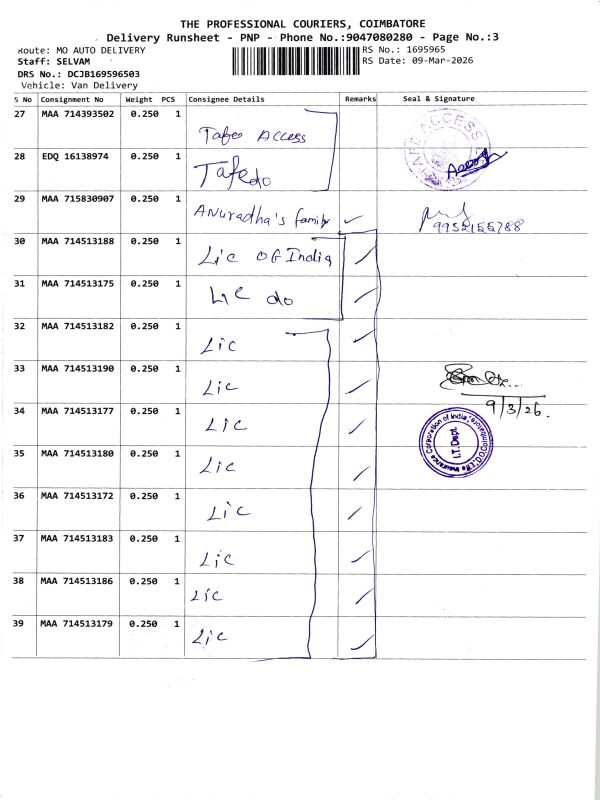 THE PROFESSIONAL COURIERS, COIMBATORE
Delivery Runsheet - PNP - Phone No.:9047080280 - Page No.:3
Route: MO AUTO DELIVERY
RS No.: 1695965
Staff: SELVAM
RS Date: 09-Mar-2026
DRS No.: DCJB169596503
Vehicle: Van Delivery
S No Consignment No Weight PCS Consignee Details Remarks Seal & Signature
27 MAA 714393502 0.250 1 Tafe Access
28 EDQ 16138974 0.250 1 Tafe do
29 MAA 715830907 0.250 1 Anuradha's family 9952155788
30 MAA 714513188 0.250 1 Lic OF India
31 MAA 714513175 0.250 1 Lic do
32 MAA 714513182 0.250 1 Lic
33 MAA 714513190 0.250 1 Lic
9/3/26.
34 MAA 714513177 0.250 1 Lic
Insurance Corporation of India
I.T.Dept
35 MAA 714513180 0.250 1 Lic
36 MAA 714513172 0.250 1 Lic
37 MAA 714513183 0.250 1 Lic
38 MAA 714513186 0.250 1 Lic
39 MAA 714513179 0.250 1 Lic